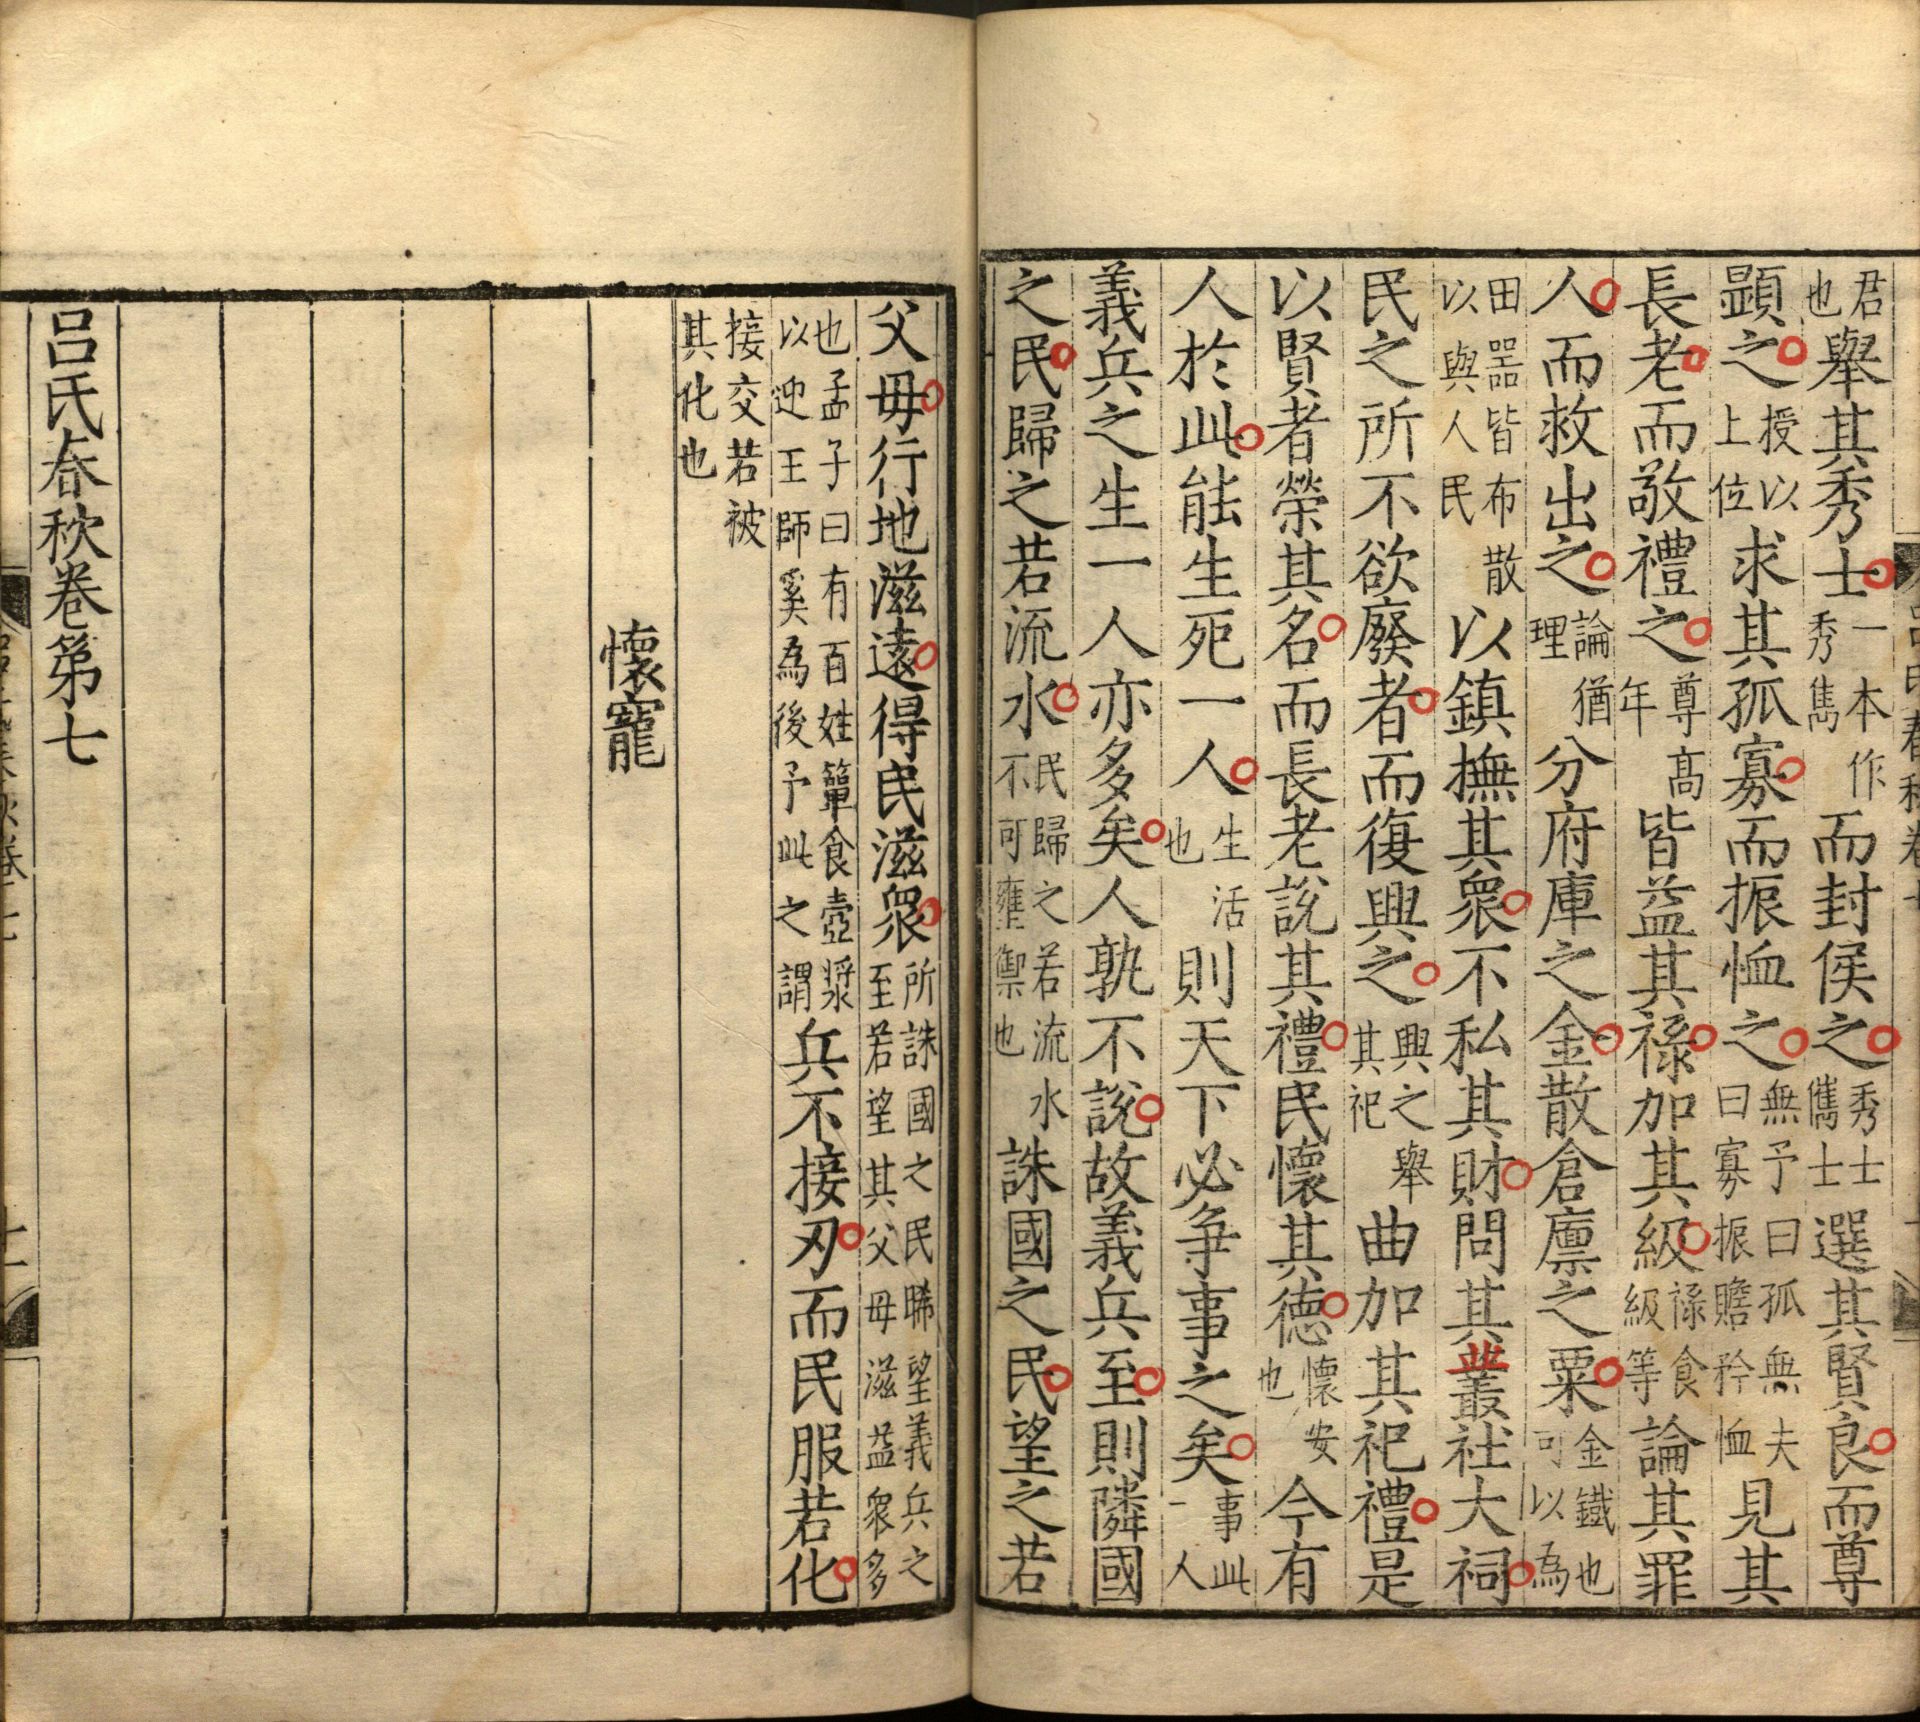 君也舉其秀士一本作秀雋而封侯之秀士儁士選其賢良而尊
顯之授以上位求其孤寡而振恤之無子曰孤無夫曰寡振贍矜恤見其
長老而敬禮之尊高年皆益其祿加其級祿食級等論其罪
人而救出之論猶理分府庫之金散倉廩之粟金鐵也可以為
田噐皆布散以與人民以鎮撫其衆不私其財問其叢社大祠
民之所不欲廢者而復興之興之舉其祀曲加其祀禮是
以賢者榮其名而長老說其禮民懷其德懷安也今有
人於此能生死一人生活也則天下必爭事之矣事此一人
義兵之生一人亦多矣人孰不說故義兵至則隣國
之民歸之若流水民歸之若流水不可壅禦也誅國之民望之若
父母行地滋遠得民滋衆所誅國之民睎望義兵之至若望其父母滋益衆多
也孟子曰有百姓簞食壺漿以迎王師奚為後予此之謂兵不接刃而民服若化
接交若被其化也
懷寵
呂氏春秋卷第七